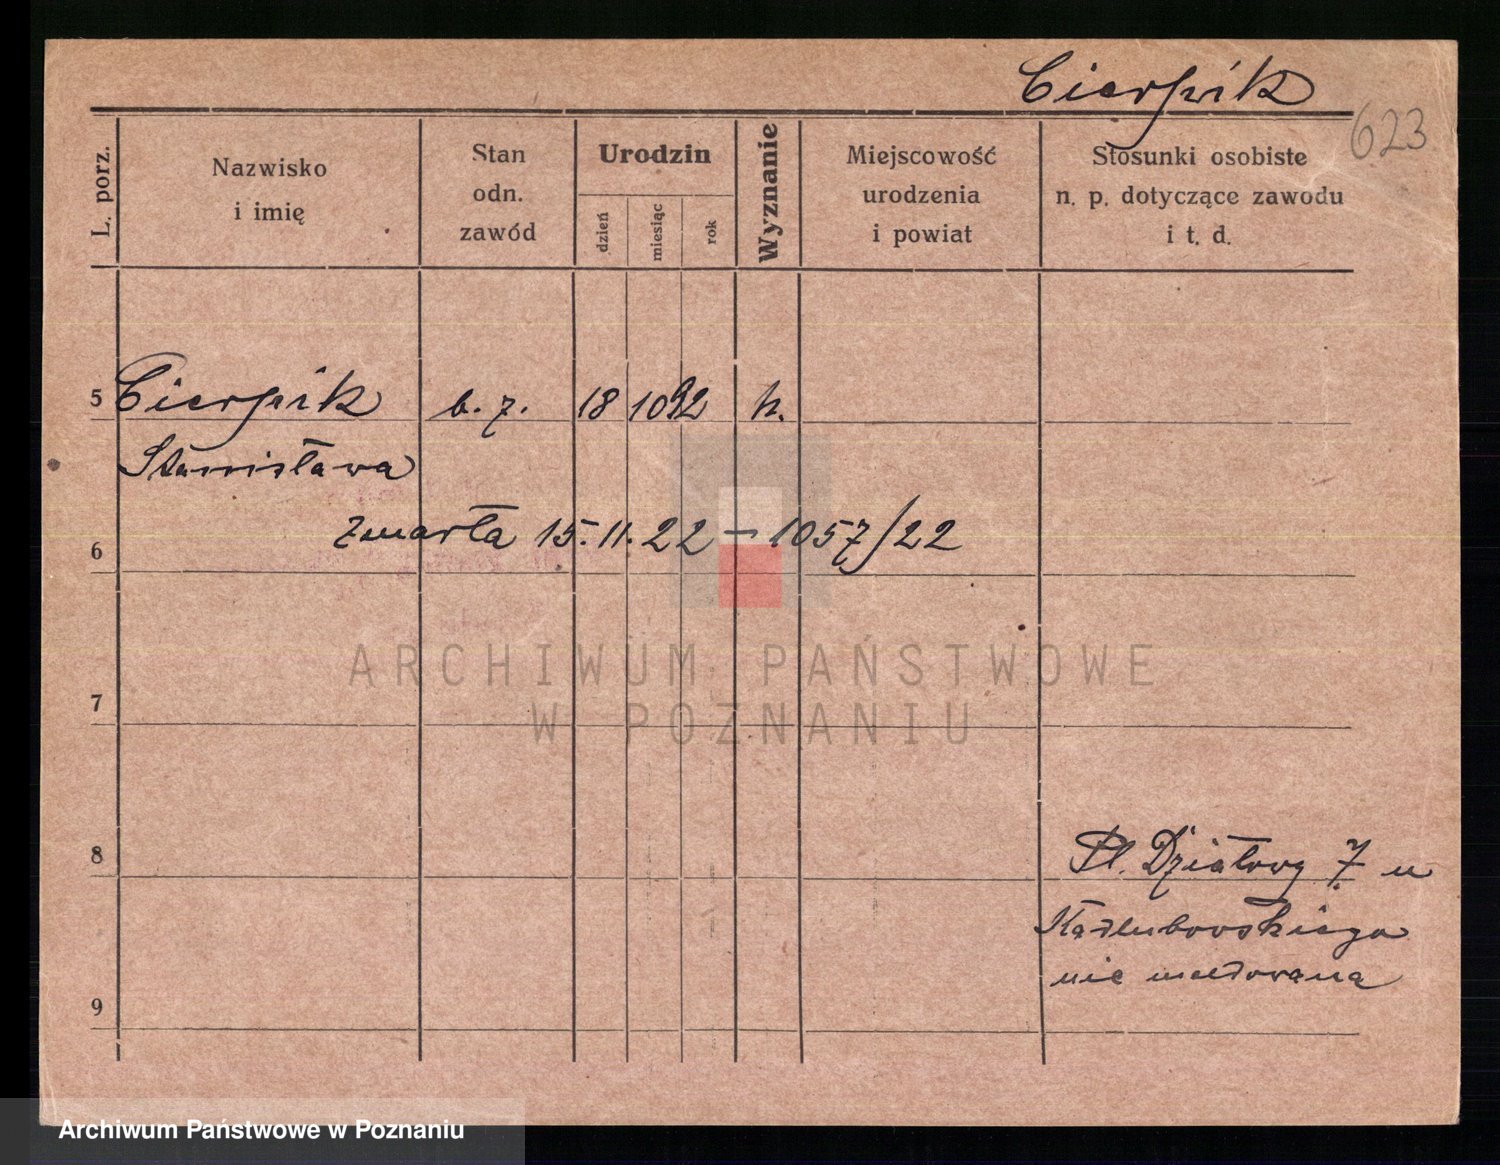 Cierpik
623
L. porz.
Nazwisko
i imię
Stan
odn.
zawód
Urodzin
dzień
miesiąc
rok
Wyznanie
Miejscowość
urodzenia
i powiat
Stosunki osobiste
n. p. dotyczące zawodu
i t. d.
5 Cierpik b. z. 18 10 92 k.
Stanisława
zmarła 15.11.22 — 1057/22
6
ARCHIWUM PAŃSTWOWE
W POZNANIU
7
8
Pl. Działowy 7 u
Kadlubowskiego
nie meldowana
9
Archiwum Państwowe w Poznaniu